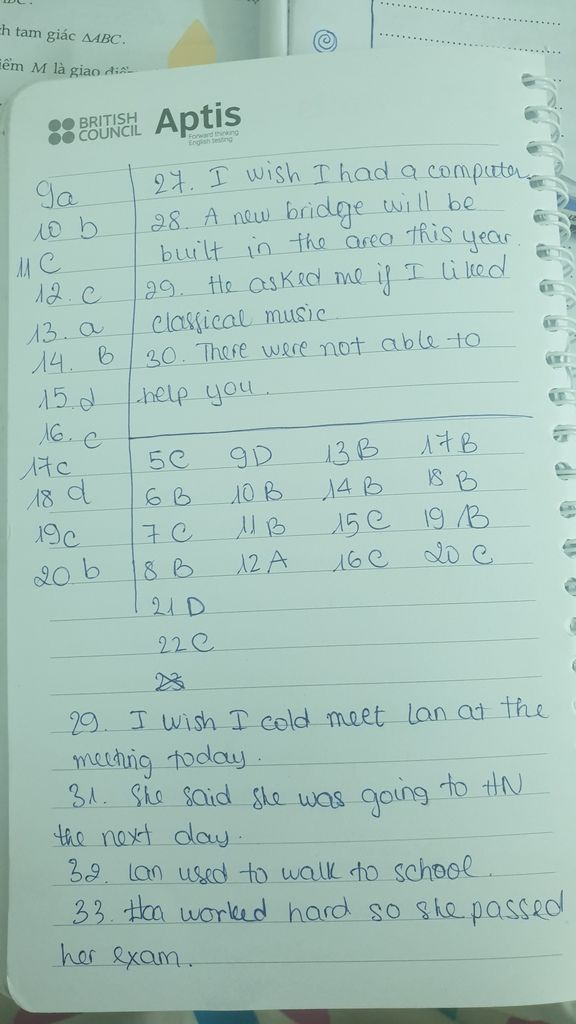 h tam giác ΔABC.
iểm M là giao điể
BRITISH COUNCIL
Aptis
Forward thinking
English testing
9a
10 b
11 C
12. c
13. a
14. B
15. d
16. c
17c
18 d
19c
20 b
27. I wish I had a computer
28. A new bridge will be
built in the area this year.
29. He asked me if I liked
classical music.
30. There were not able to
help you.
5C 9D 13B 17B
6B 10B 14B 18 B
7C 11B 15C 19 B
8B 12A 16C 20 C
21 D
22C
29. I wish I cold meet Lan at the
meeting today.
31. She said she was going to HN
the next day.
32. Lan used to walk to school.
33. Hoa worked hard so she passed
her exam.